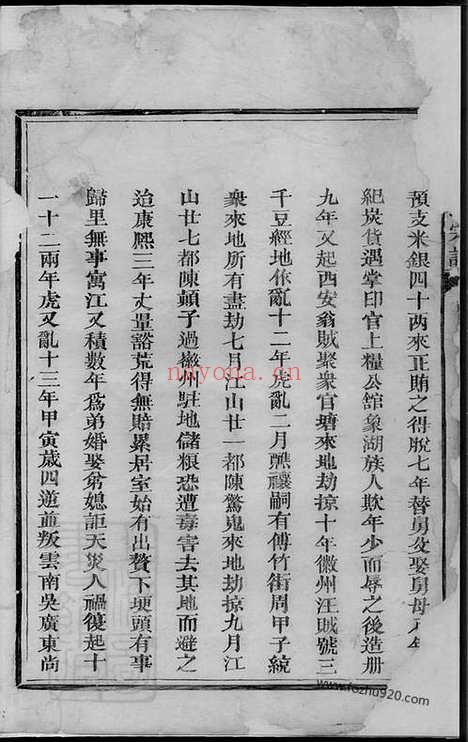 預支米銀四十两來正賄之得脫七年替舅父娶舅母八年
紀炭貨遇掌印官上糧公館象湖族人欺年少而辱之後造册
九年又起西安翁賊聚衆官塘來地劫掠十年徽州汪賊號三
千豆經地作亂十二年虎亂二月醮禳嗣有傅竹街周甲子統
衆來地所有盡劫七月江山廿一都陳驚鬼來地劫掠九月江
山廿七都陳頓子過徽州駐地儲粮恐遭毒害去其地而避之
迨康熙三年丈量豁荒得無賠累居室始有出贅下埂頭有事
歸里無事寓江又積數年爲弟婚娶弟媳詎天災人禍復起十
一十二兩年虎又亂十三年甲寅歲四逆並叛雲南吳廣東尚
nayona.cn
www.fozhu920.com